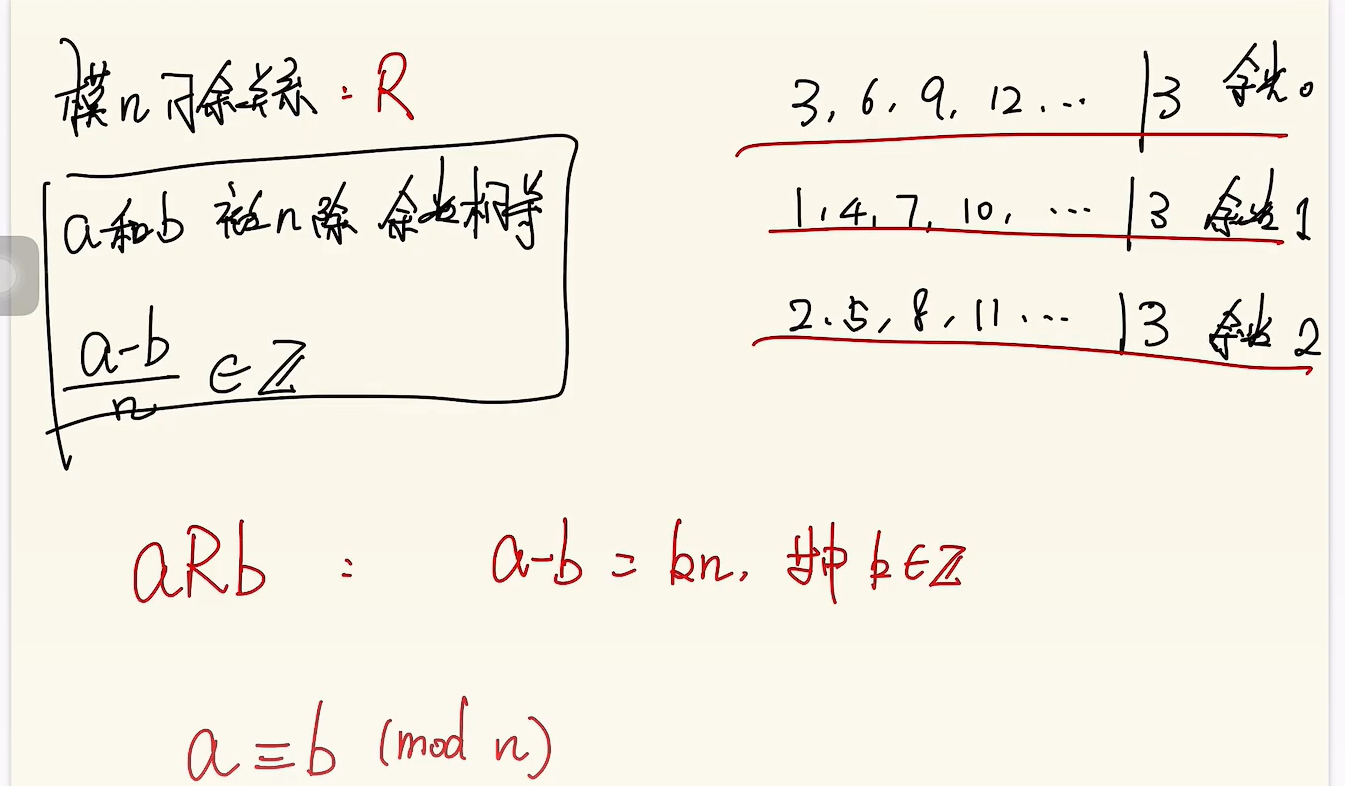 模n同余关系：R
a和b 被n除 余数相等
a-b
n ∈ ℤ
3, 6, 9, 12 ... | 3 余数0
1, 4, 7, 10, ... | 3 余数1
2. 5, 8, 11 ... | 3 余数2
aRb : a-b = kn, 其中 k∈ℤ
a ≡ b (mod n)